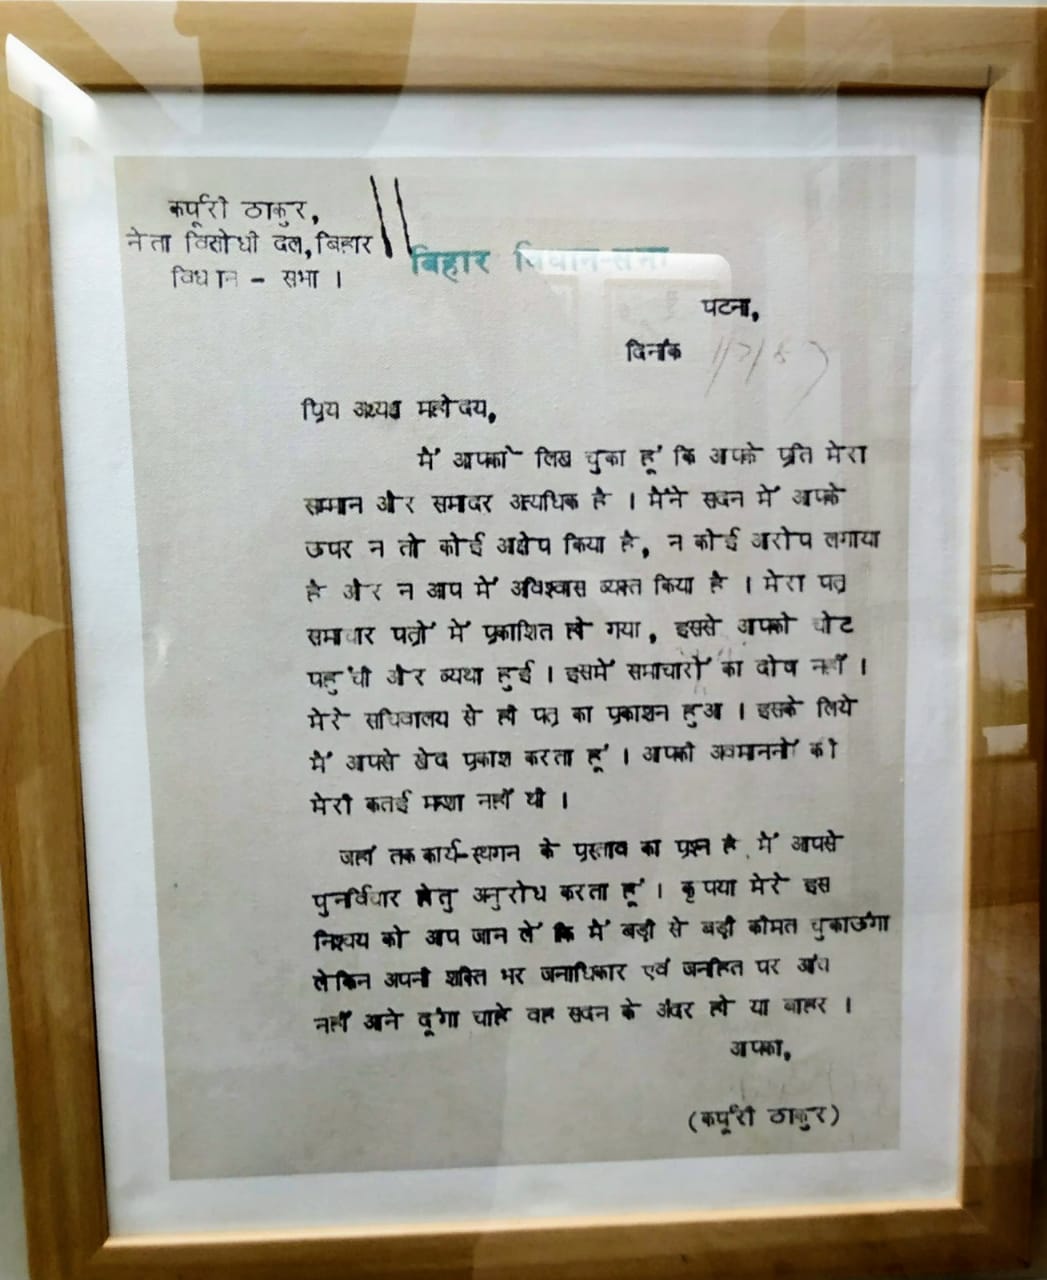 कर्पूरी ठाकुर,
नेता विरोधी दल, बिहार
विधान - सभा ।
बिहार विधान-सभा
पटना,
दिनांक
प्रिय अध्यक्ष महोदय,
मैं आपको लिख चुका हूं कि आपके प्रति मेरा
सम्मान और समादर अत्यधिक है । मैंने सदन में आपके
उपर न तो कोई अक्षेप किया है, न कोई अरोप लगाया
है और न आप में अविश्वास व्यक्त किया है । मेरा पत्र
समाचार पत्रों में प्रकाशित हो गया, इससे आपको चोट
पहुंची और व्यथा हुई । इसमें समाचारों का दोष नहीं ।
मेरे सचिवालय से ही पत्र का प्रकाशन हुआ । इसके लिये
मैं आपसे खेद प्रकाश करता हूं । आपकी अवमाननों की
मेरी कतई मंशा नहीं थी ।
जहां तक कार्य-स्थगन के प्रस्ताव का प्रश्न है, मैं आपसे
पुनर्विचार हेतु अनुरोध करता हूं । कृपया मेरे इस
निश्चय को आप जान लें कि मैं बड़ी से बड़ी कीमत चुकाऊंगा
लेकिन अपनी शक्ति भर जनाधिकार एवं जनहित पर आंच
नहीं आने दूंगा चाहे वह सदन के अंदर हो या बाहर ।
आपका,
(कर्पूरी ठाकुर)